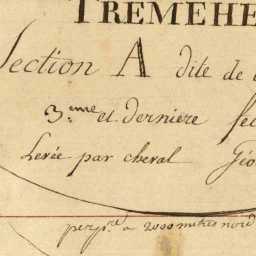 TREMEHE
Section A dite de
3.eme et derniere feu
Levée par cheval Géo
a 2000 metres nord